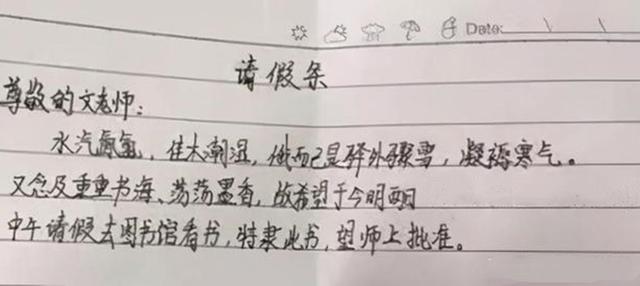 Date: \ \
请假条
尊敬的文老师：
水汽氤氲，佳木潮湿，俄而已是驿外骤雪，凝褥寒气。
又念及重重书海、荡荡墨香，故希望于今明两日
中午请假去图书馆看书，特隶此书，望师上批准。